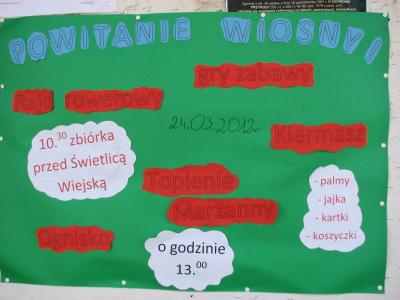 POWITANIE WIOSNY!
gry zabawy
Rajd rowerowy
24.03.2012r
Kiermasz
10.30 zbiórka
przed Świetlicą
Wiejską
Topienie
Marzanny
- palmy
- jajka
- kartki
- koszyczki
Ognisko
o godzinie
13.00